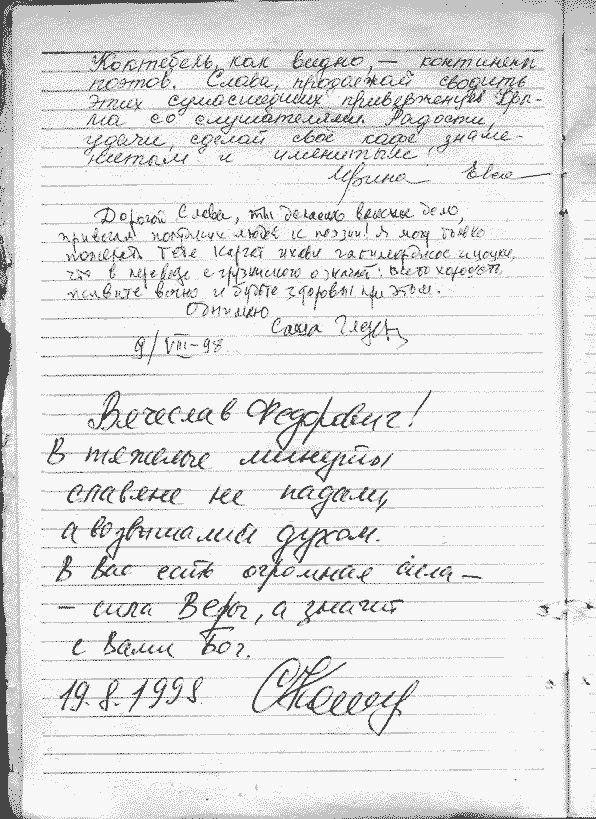 Коктебель, как видно, — континент
поэтов. Слава, продолжай сводить
этих сумасшедших приверженцев
со слушателями. Радости,
удачи, сделай своё кафе знаме-
нитым и именитым
Ирина
Дорогой Слава, ты делаешь важное дело,
людей к поэзии! Я могу только
пожелать тебе
что в переводе с грузинского означает:
живите вечно и будьте здоровы при этом.
Обнимаю
Саша
9/VIII-98
Вячеслав Федорович!
В тяжелые минуты
славяне не падали,
а возвышались духом.
В Вас есть огромная сила —
— сила Веры, а значит
с Вами Бог.
19.8.1998